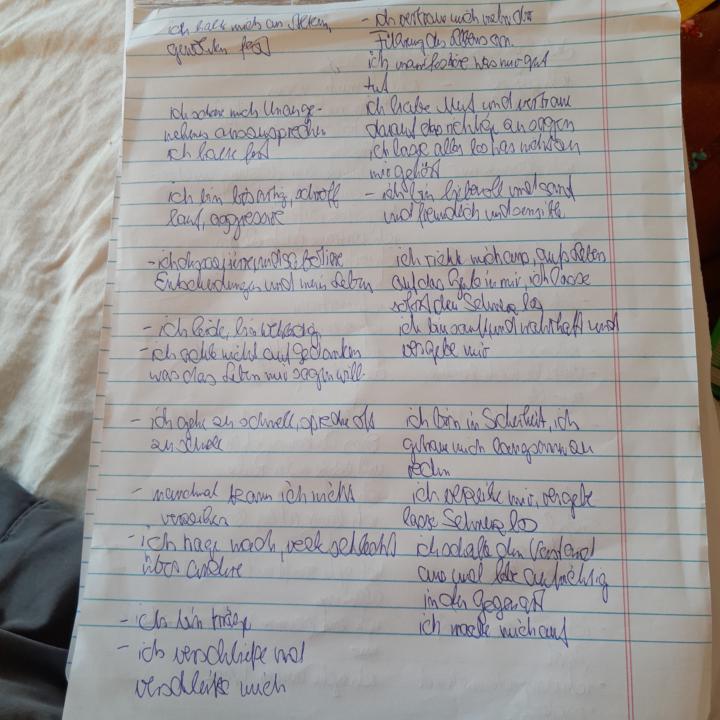 ich halte mich an
fest
- ich vertraue mich mehr der
Führung des
ich manifestiere was mir gut
tut
ich scheue mich Unange-
nehmes anzusprechen
ich halte fest
ich habe Mut und vertraue
darauf das richtige zu sagen
ich lasse alles los was nicht zu
mir gehört
ich bin schroff
laut, aggressiv
- ich bin liebevoll und sanft
und freundlich und sensitiv
- ich
Entscheidungen und mein Leben
ich richte mich aus, auf das Leben
auf das Gute in mir, ich lasse
sofort den Schmerz los
- ich leide, bin wehleidig
- ich achte nicht auf Gedanken
was das Leben mir sagen will.
ich bin sanft und wahrhaft und
vergebe mir
- ich gehe zu schnell, spreche oft
zu schnell
ich bin in Sicherheit, ich
getraue mich langsam zu
reden
- manchmal kann ich nicht
verzeihen
ich verzeihe mir, vergebe
lasse Schmerz los
- ich trage nach, rede schlecht
über andere
ich schalte den Verstand
aus und lebe
in der Gegenwart
- ich bin träge
ich mache mich auf
- ich verschließe und
verschließe mich